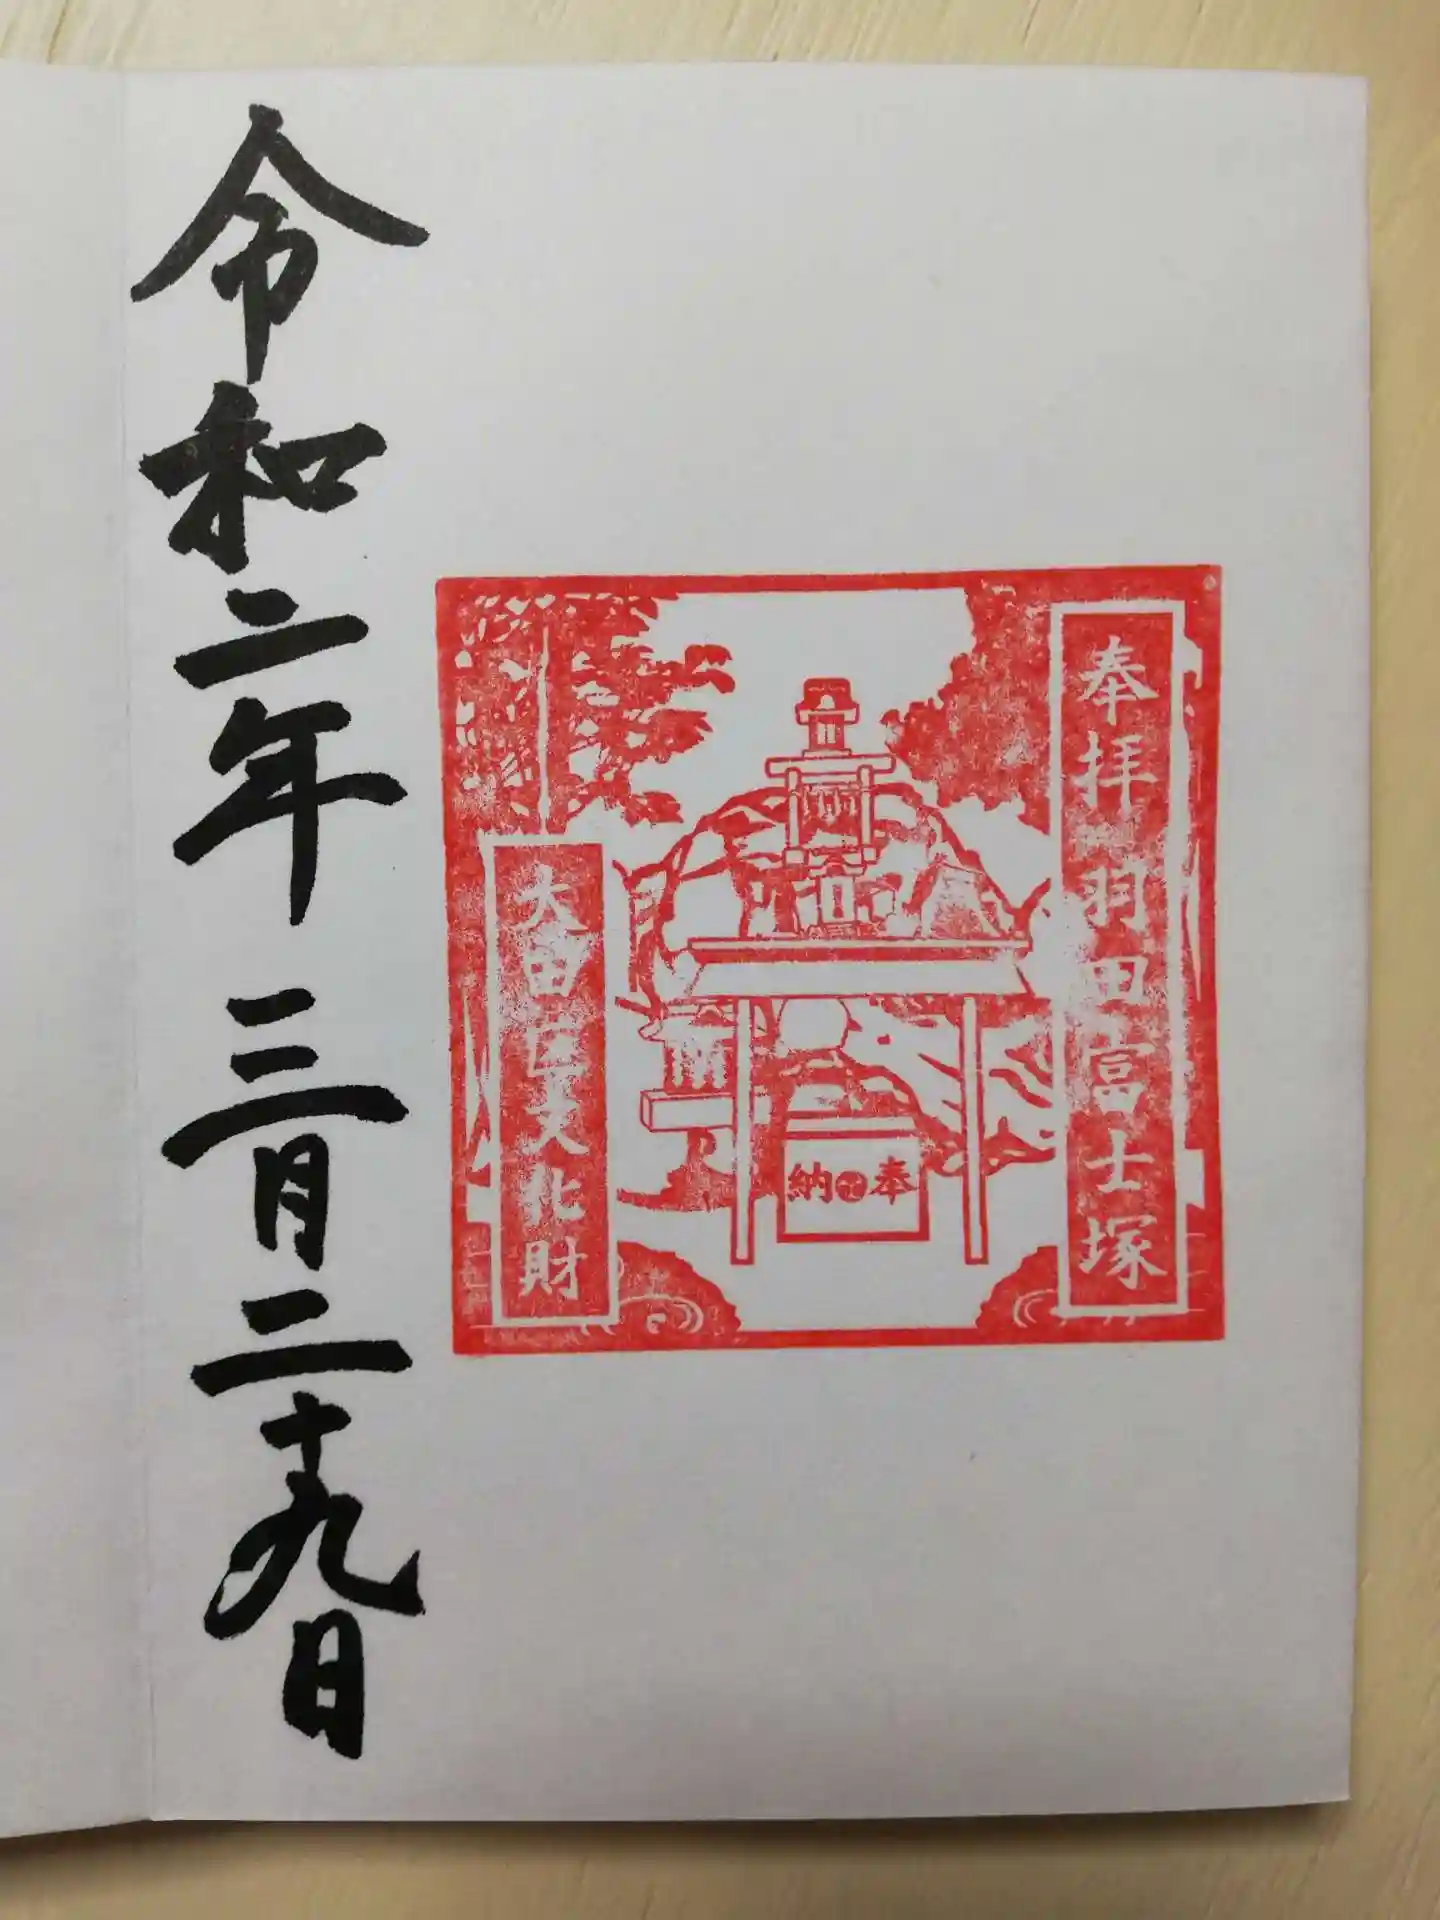 奉拝 羽田富士塚
大田区文化財
納 奉
令和二年 三月二十九日